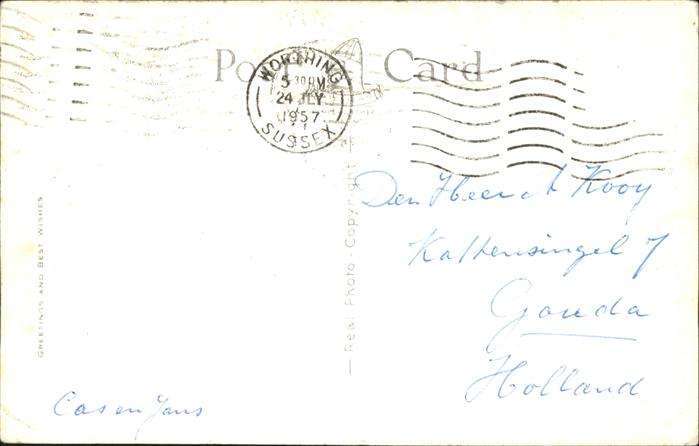 Post Card
WORTHING
5 30 PM
24 JLY
1957
SUSSEX
GREETINGS AND BEST WISHES
Real Photo - Copyright
Den Heer A Kooy
Kattensingel 7
Gouda
Holland
Cas en Jans